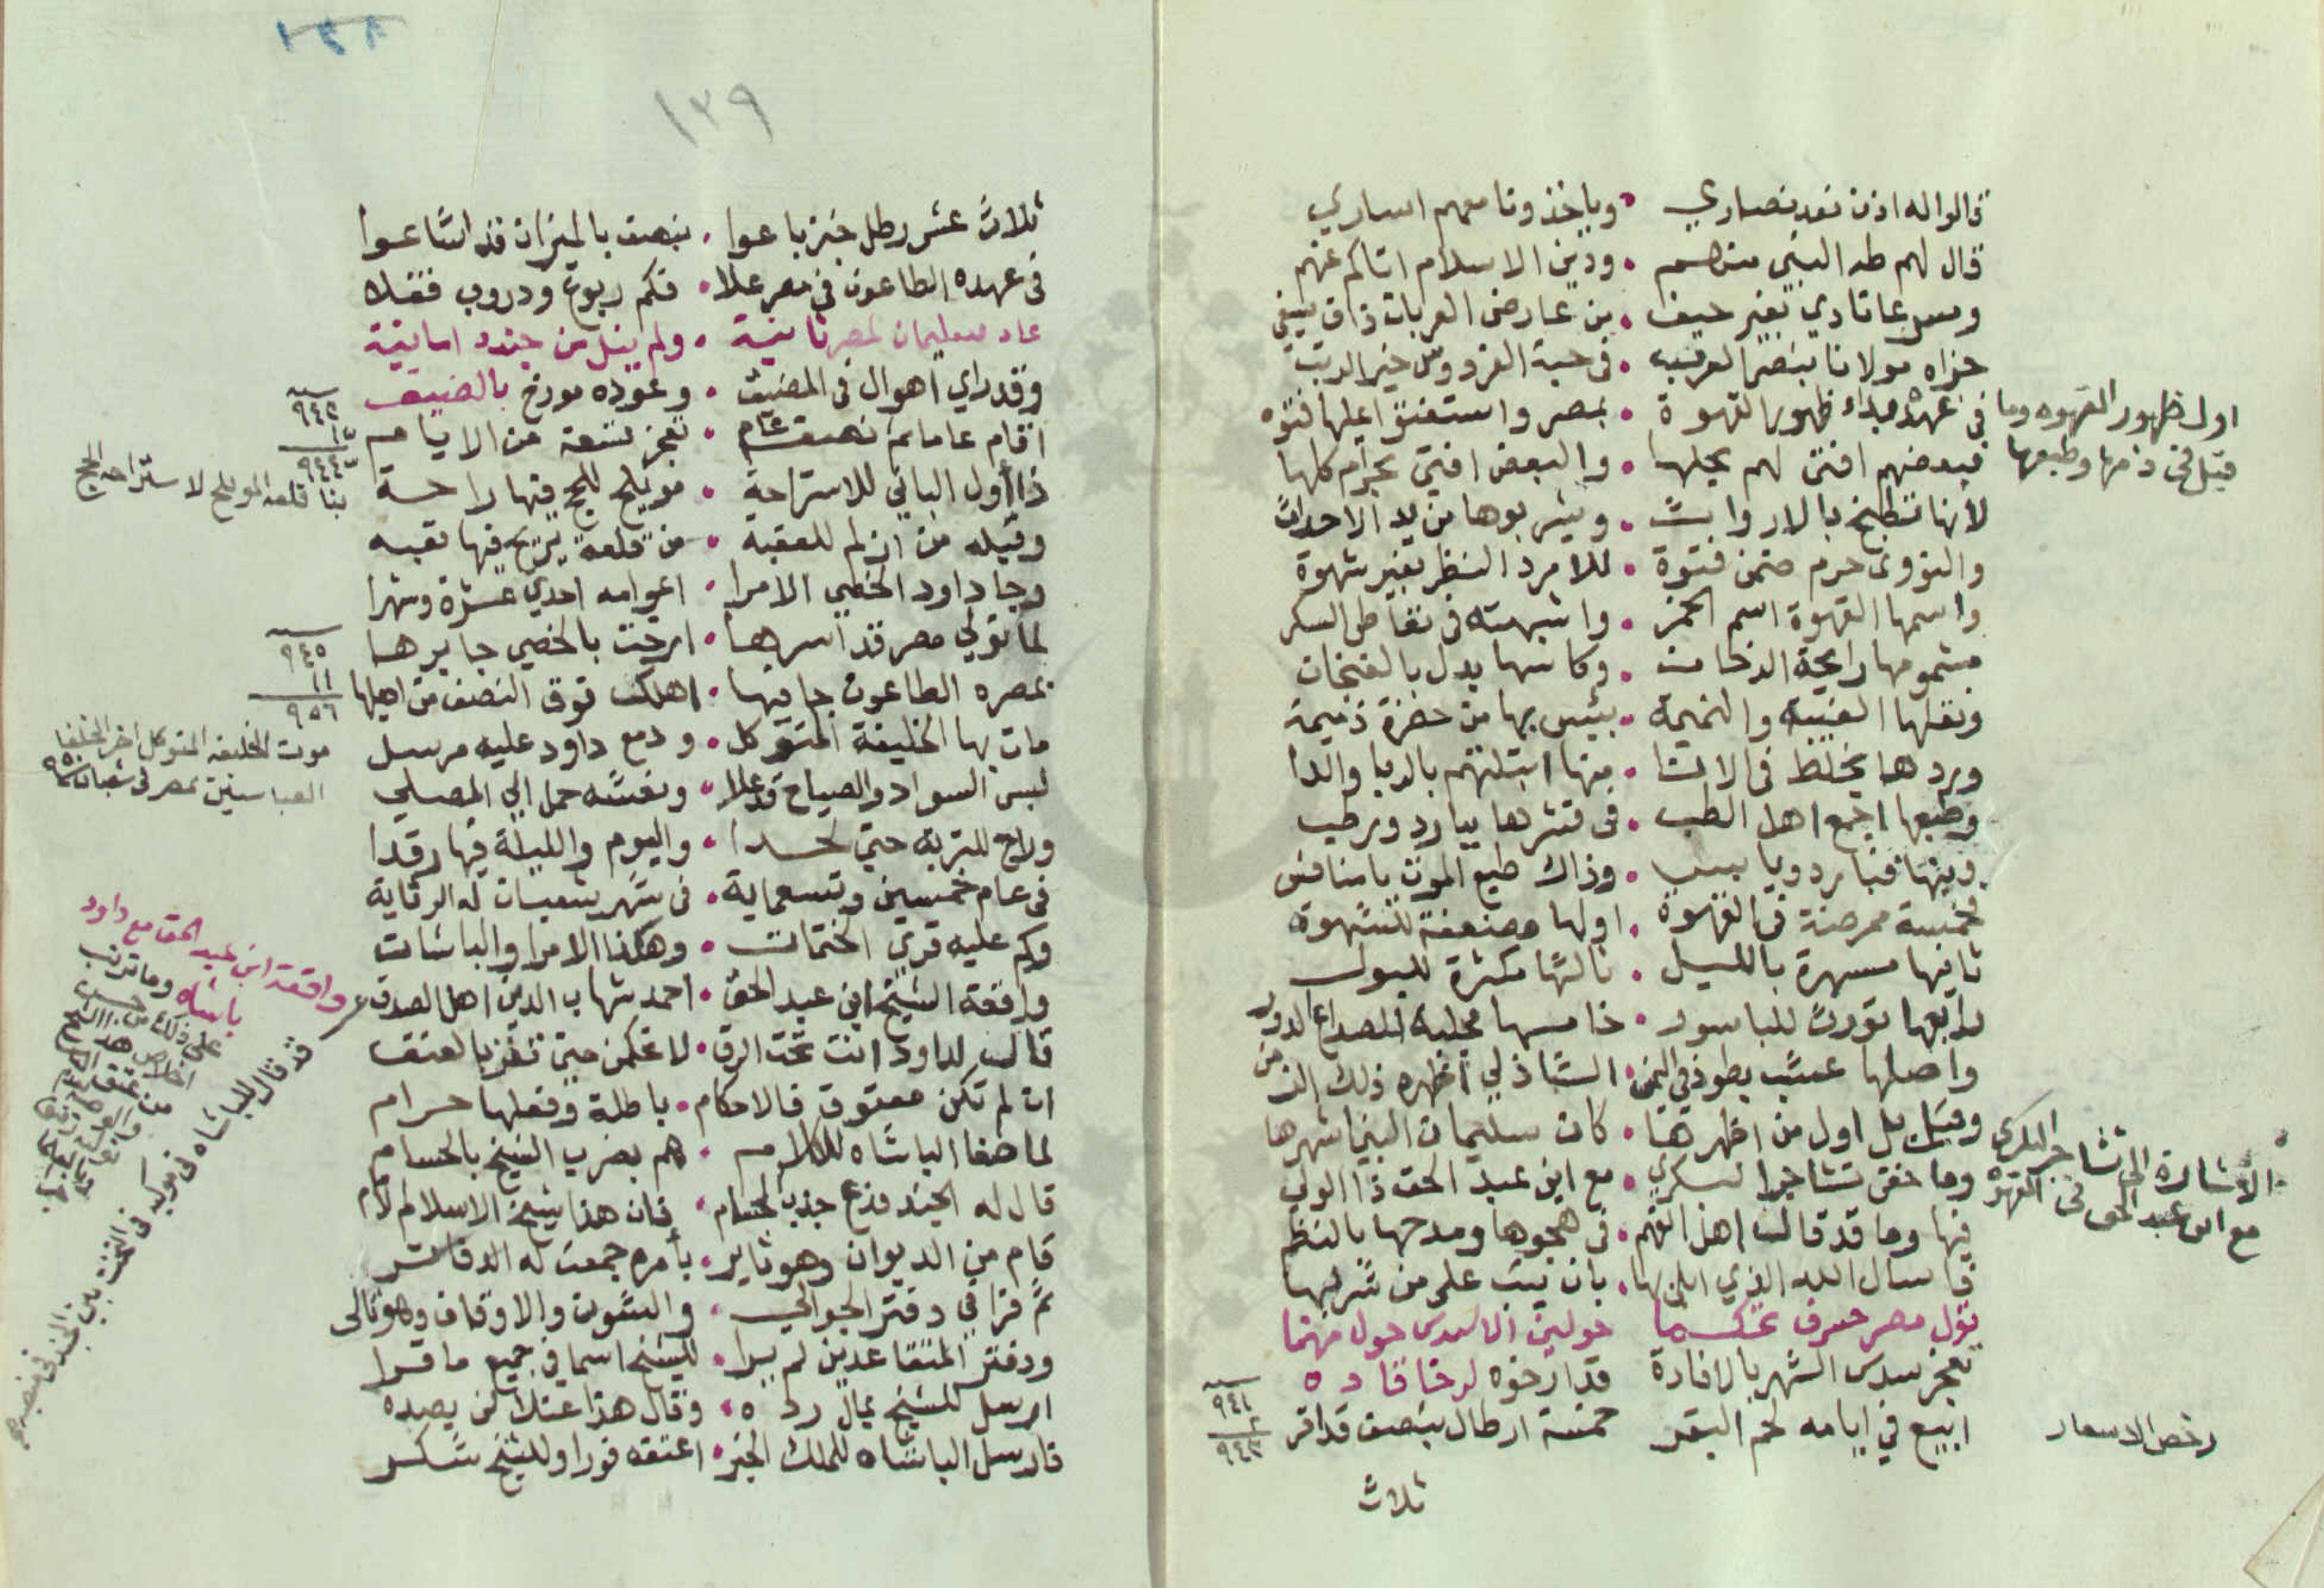 قالوا له اذن نفد بنصاري • وياخذونا معهم اساري
قال لهم طه النبي منهم • ودين الاسلام اتاكم عنهم
وسرعا نادي بغير حيف • من عارض العربان ذاق سيفي
جزاه مولانا بنصر العرب • في جنة الفردوس خير الرتب
في عهده مبداء ظهور القهوة • بمصر واستفتوا عليها فتوه
فبعضهم افتى لهم بحلها • والبعض افتي بحرام كلها
لأنها تطبخ بالارواث • ويشربوها من يد الاحداث
والنووى حرم ضمن فتوة • للامرد النظر بغير شهوة
واسمها القهوة اسم الخمر • واشبهته في تعاطى السكر
مشمومها رايحة الدخان • وكاسها بدل بالفنجان
ونقلها الغيبة والنميمة • بئيس بها من خضرة ذميمة
وبردها يخلط في الانثا • منها ابتلتهم بالربا والدا
وطبعها اجمع اهل الطب • في قشرها ببارد ورطب
وبنها فبارد ويابس • وذاك طبع الموت يا منافس
فخمسة ممرضة في القهوة • اولها مضعفة للشهوة
ثانيها مسهرة بالليل • ثالثها مكثرة للبول
رابعها تورث للباسور • خامسها مجلبة للصداع الدور
واصلها عشب بطوذ في اليمن • الشاذلي أظهره ذلك الفن
وقيل بل اول من اظهرها • كان سليمان النبي اشهرها
وما خفى تشاجر البكري • مع ابن عبد الحق ذا الولي
فيها وما قد قالت اهل الفهم • في هجوها ومدحها بالنظم
فاسال الله الذي ابلى بها • بان يتب على من شربها
تول مصر خسرف عكسا حولين الا سدس حول مهتما
بعجز سدس الشهر بالافادة قد ارخوه لرخا قاده
ابيع في ايامه لحم البقر خمسة ارطال بنصف قد اقر
ثلاث
اول ظهور القهوه وما
قيل في ذمها وطبعها
الاشارة الى تشاجر البكري
مع ابن عبد الحق في القهوه
رخص الاسعار
٩٤١
٢
٩٤٣
١٣٩
ثلاث عشر رطل خبز باعوا • بنصف بالميزان قد اشاعوا
في عهده الطاعون في مصر علا • فكم ربوع ودروب قفلا
عاد سليمان لمصر ثانية • ولم ينل من جنده امانية
وقد راي اهوال في المضيف • وعوده مورخ بالضيف
اقام عاما ثم نصف عام • بعجز تسعة من الايام
ذا أول الباني للاستراحة • مويلح للحج فيها راحة
وقبله من ازلم للعقبة • من قلعة يريح فيها تعبه
وجا داود الخصي الامرا • اعوامه احدي عشرة وشهرا
لما تولي مصر قد اسرها • ارخت بالخصي جا يرها
بمصره الطاعون جا فيها • اهلكت فوق النصف من اهلها
مات بها الخليفة المتوكل • ودمع داود عليه مرسل
لبس السواد والصياح قد علا • ونعشه حمل الي المصلي
وراح للتربة حتي لحدا • واليوم والليلة فيها رقدا
في عام خمسين وتسعماية • في شهر شعبان له الرثاية
وكم عليه قري الختمات • وهكذا الامرا والباشات
واقعة الشيخ ابن عبد الحق • احمد شهاب الدين اهل الصدق
قال لداود انت تحت الرق • لا تحكمن حتى تفز بالعتق
ان لم تكن معتوق فالاحكام • باطلة وفعلها حرام
لما صغا الباشاه للكلام • هم بضرب الشيخ بالحسام
قال له الجند فدع جذب الحسام • فان هذا شيخ الاسلام لام
قام من الديوان وهو ثاير • بأمره جمعت له الدفاتر
ثم قرا في دفتر الجوالي • والشون والاوقاف وهو تالى
ودفتر المتقاعدين لم يرا • للشيخ اسما في جميع ما قرا
ارسل للشيخ بمال رده • وقال هذا عتلا لن يصيده
فارسل الباشاه للملك الخبر • اعتقه فورا وللشيخ شكر
٩٤٣
٩٤٤
بنا قلعه المويلح لاستراحه الحج
٩٤٥
١١
٩٥٦
موت الخليفه المتوكل اخر الخلفا
العباسيين بمصر في شعبان ٩٥٠
واقعة ابن عبد الحق مع داود
باشاه وما ترتب
على ذلك من